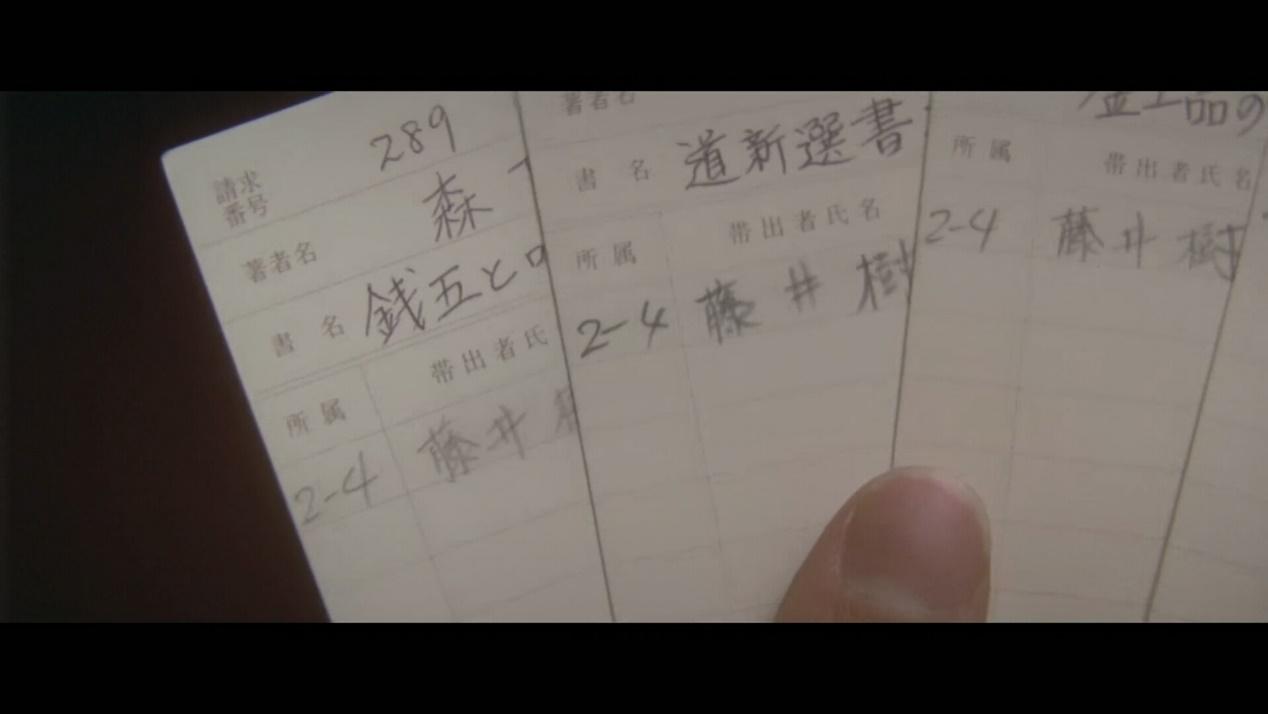 請求番号 289
著者名 森
書 名 銭五と
所 属 帯出者氏
2-4 藤井
著者名
書 名 道新選書
所 属 帯出者氏名
2-4 藤井 樹
品の
所 属 帯出者氏名
2-4 藤井 樹